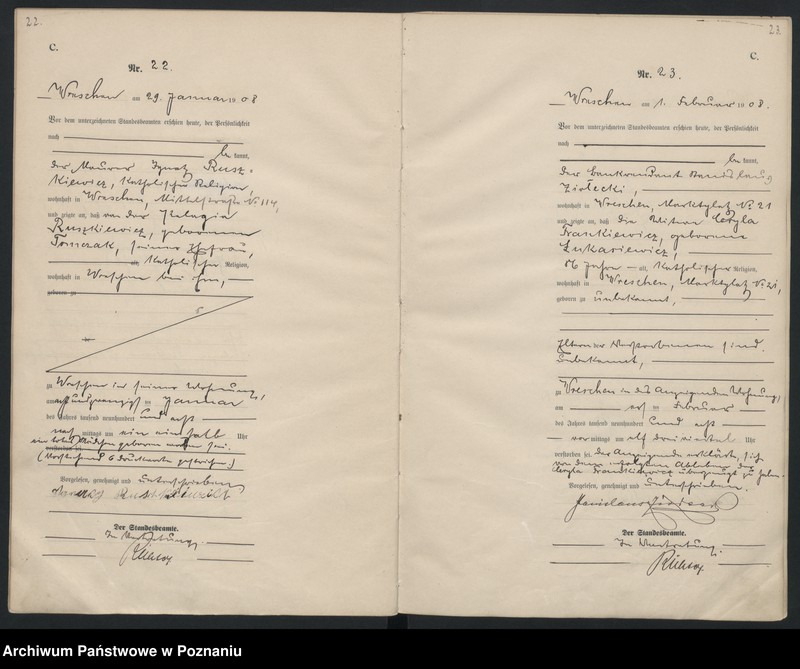 22.
C.
Nr. 22.
Wreschen am 29. Januar 1908
Vor dem unterzeichneten Standesbeamten erschien heute, der Persönlichkeit
nach
be kannt,
der Maurer Ignatz Rusz-
kiewicz, katholischer Religion,
wohnhaft in Wreschen, Mittelstraße No 114,
und zeigte an, daß von der Pelagia
Ruszkiewicz, geborenen
Tomczak, seiner Ehefrau,
alt, katholischer Religion,
wohnhaft in Wreschen bei ihm,
geboren zu
zu Wreschen in seiner Wohnung,
am Januar
des Jahres tausend neunhundert und acht
nach mittags um ein einhalb Uhr
ein totes Mädchen geboren worden sei.
verstorben sei
(Vorstehend 6 Druckworte gestrichen.)
Vorgelesen, genehmigt und unterschrieben
Der Standesbeamte.
In Vertretung.
23
C.
Nr. 23.
Wreschen am 1. Februar 1908.
Vor dem unterzeichneten Standesbeamten erschien heute, der Persönlichkeit
nach
be kannt,
der Stanislaus
Ziołecki,
wohnhaft in Wreschen, Marktplatz No 21
und zeigte an, daß die Witwe
Frankiewicz, geborene
Lukasiewicz,
86 Jahre alt, katholischer Religion,
wohnhaft in Wreschen, Marktplatz No 21,
geboren zu unbekannt,
Eltern der Verstorbenen sind
unbekannt,
zu Wreschen in des Anzeigenden Wohnung,
am Februar
des Jahres tausend neunhundert und acht
vor mittags um elf dreiviertel Uhr
verstorben sei. Der Anzeigende erklärte, sich
von dem erfolgten Ableben der
Frankiewicz überzeugt zu haben.
Vorgelesen, genehmigt und unterschrieben.
Der Standesbeamte.
In Vertretung.
Archiwum Państwowe w Poznaniu